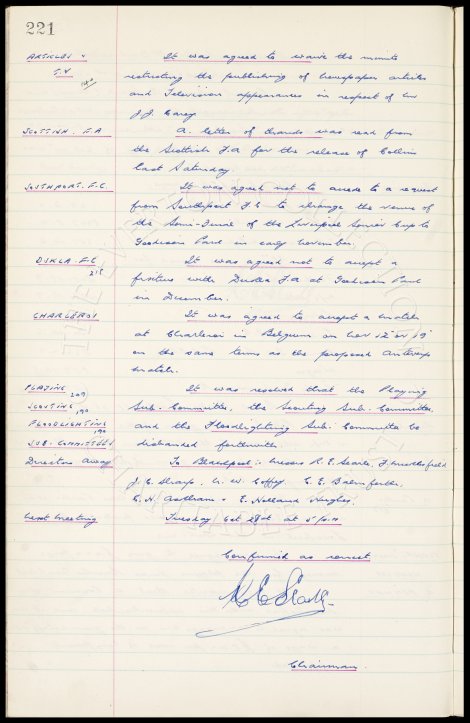 221
ARTICLES & It was agreed to waive the minute
T.V restricting the publishing of newspaper articles
and Television appearances in respect of Mr
J.J. Carey.
SCOTTISH. F.A A. letter of thanks was read from
the Scottish F.A for the release of Collins
last Saturday.
SOUTHPORT. F.C. It was agreed not to accede to a request
from Southport F.C to change the venue of
the Semi-Final of the Liverpool Senior Cup to
Goodison Park in early November.
DUKLA. F.C It was agreed not to accept a
215 fixture with Dukla F.A at Goodison Park
in December.
CHARLEROI It was agreed to accept a match
at Charleroi in Belgium on Nov 12 or 19
on the same terms as the proposed Antwerp
match.
PLAYING 209 It was resolved that the Playing
SCOUTING 190 Sub. Committee, the Scouting Sub. Committee,
FLOODLIGHTING 190 and the Floodlighting Sub. Committee be
SUB. COMMITTEES disbanded forthwith.
Directors Away To Blackpool :- Messrs R.E. Searle, F. Micklesfield
J.C. Sharp, N.W. Coffey, C.E. Balmforth,
C.H. Askham & E. Holland Hughes.
Next Meeting Tuesday Oct 28th at 5/0 p.m
Confirmed as correct
Chairman.